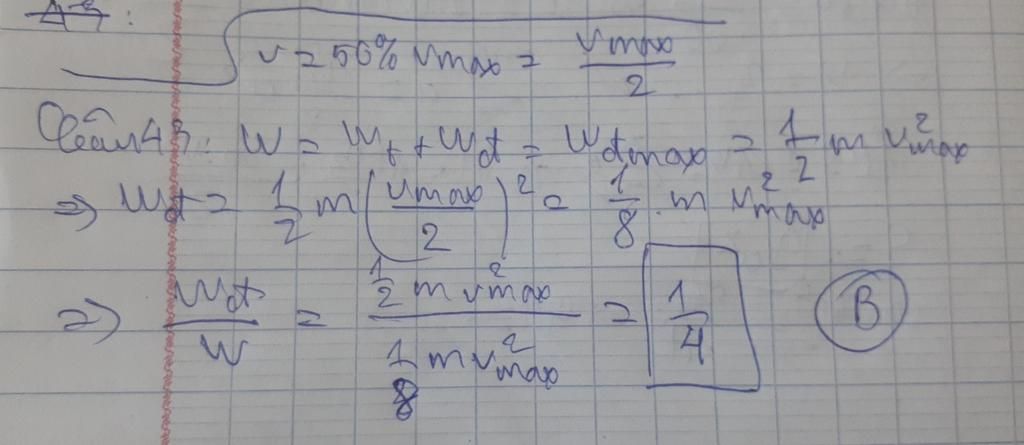 v = 50% vmax = vmax/2
Câu 43: W = Wt + Wđ = Wđmax = 1/2 m v²max
⇒ Wđ = 1/2 m (vmax/2)² = 1/8 . m v²max
⇒ Wđ/W = (1/2 m v²max)/(1/8 m v²max) = 1/4 B